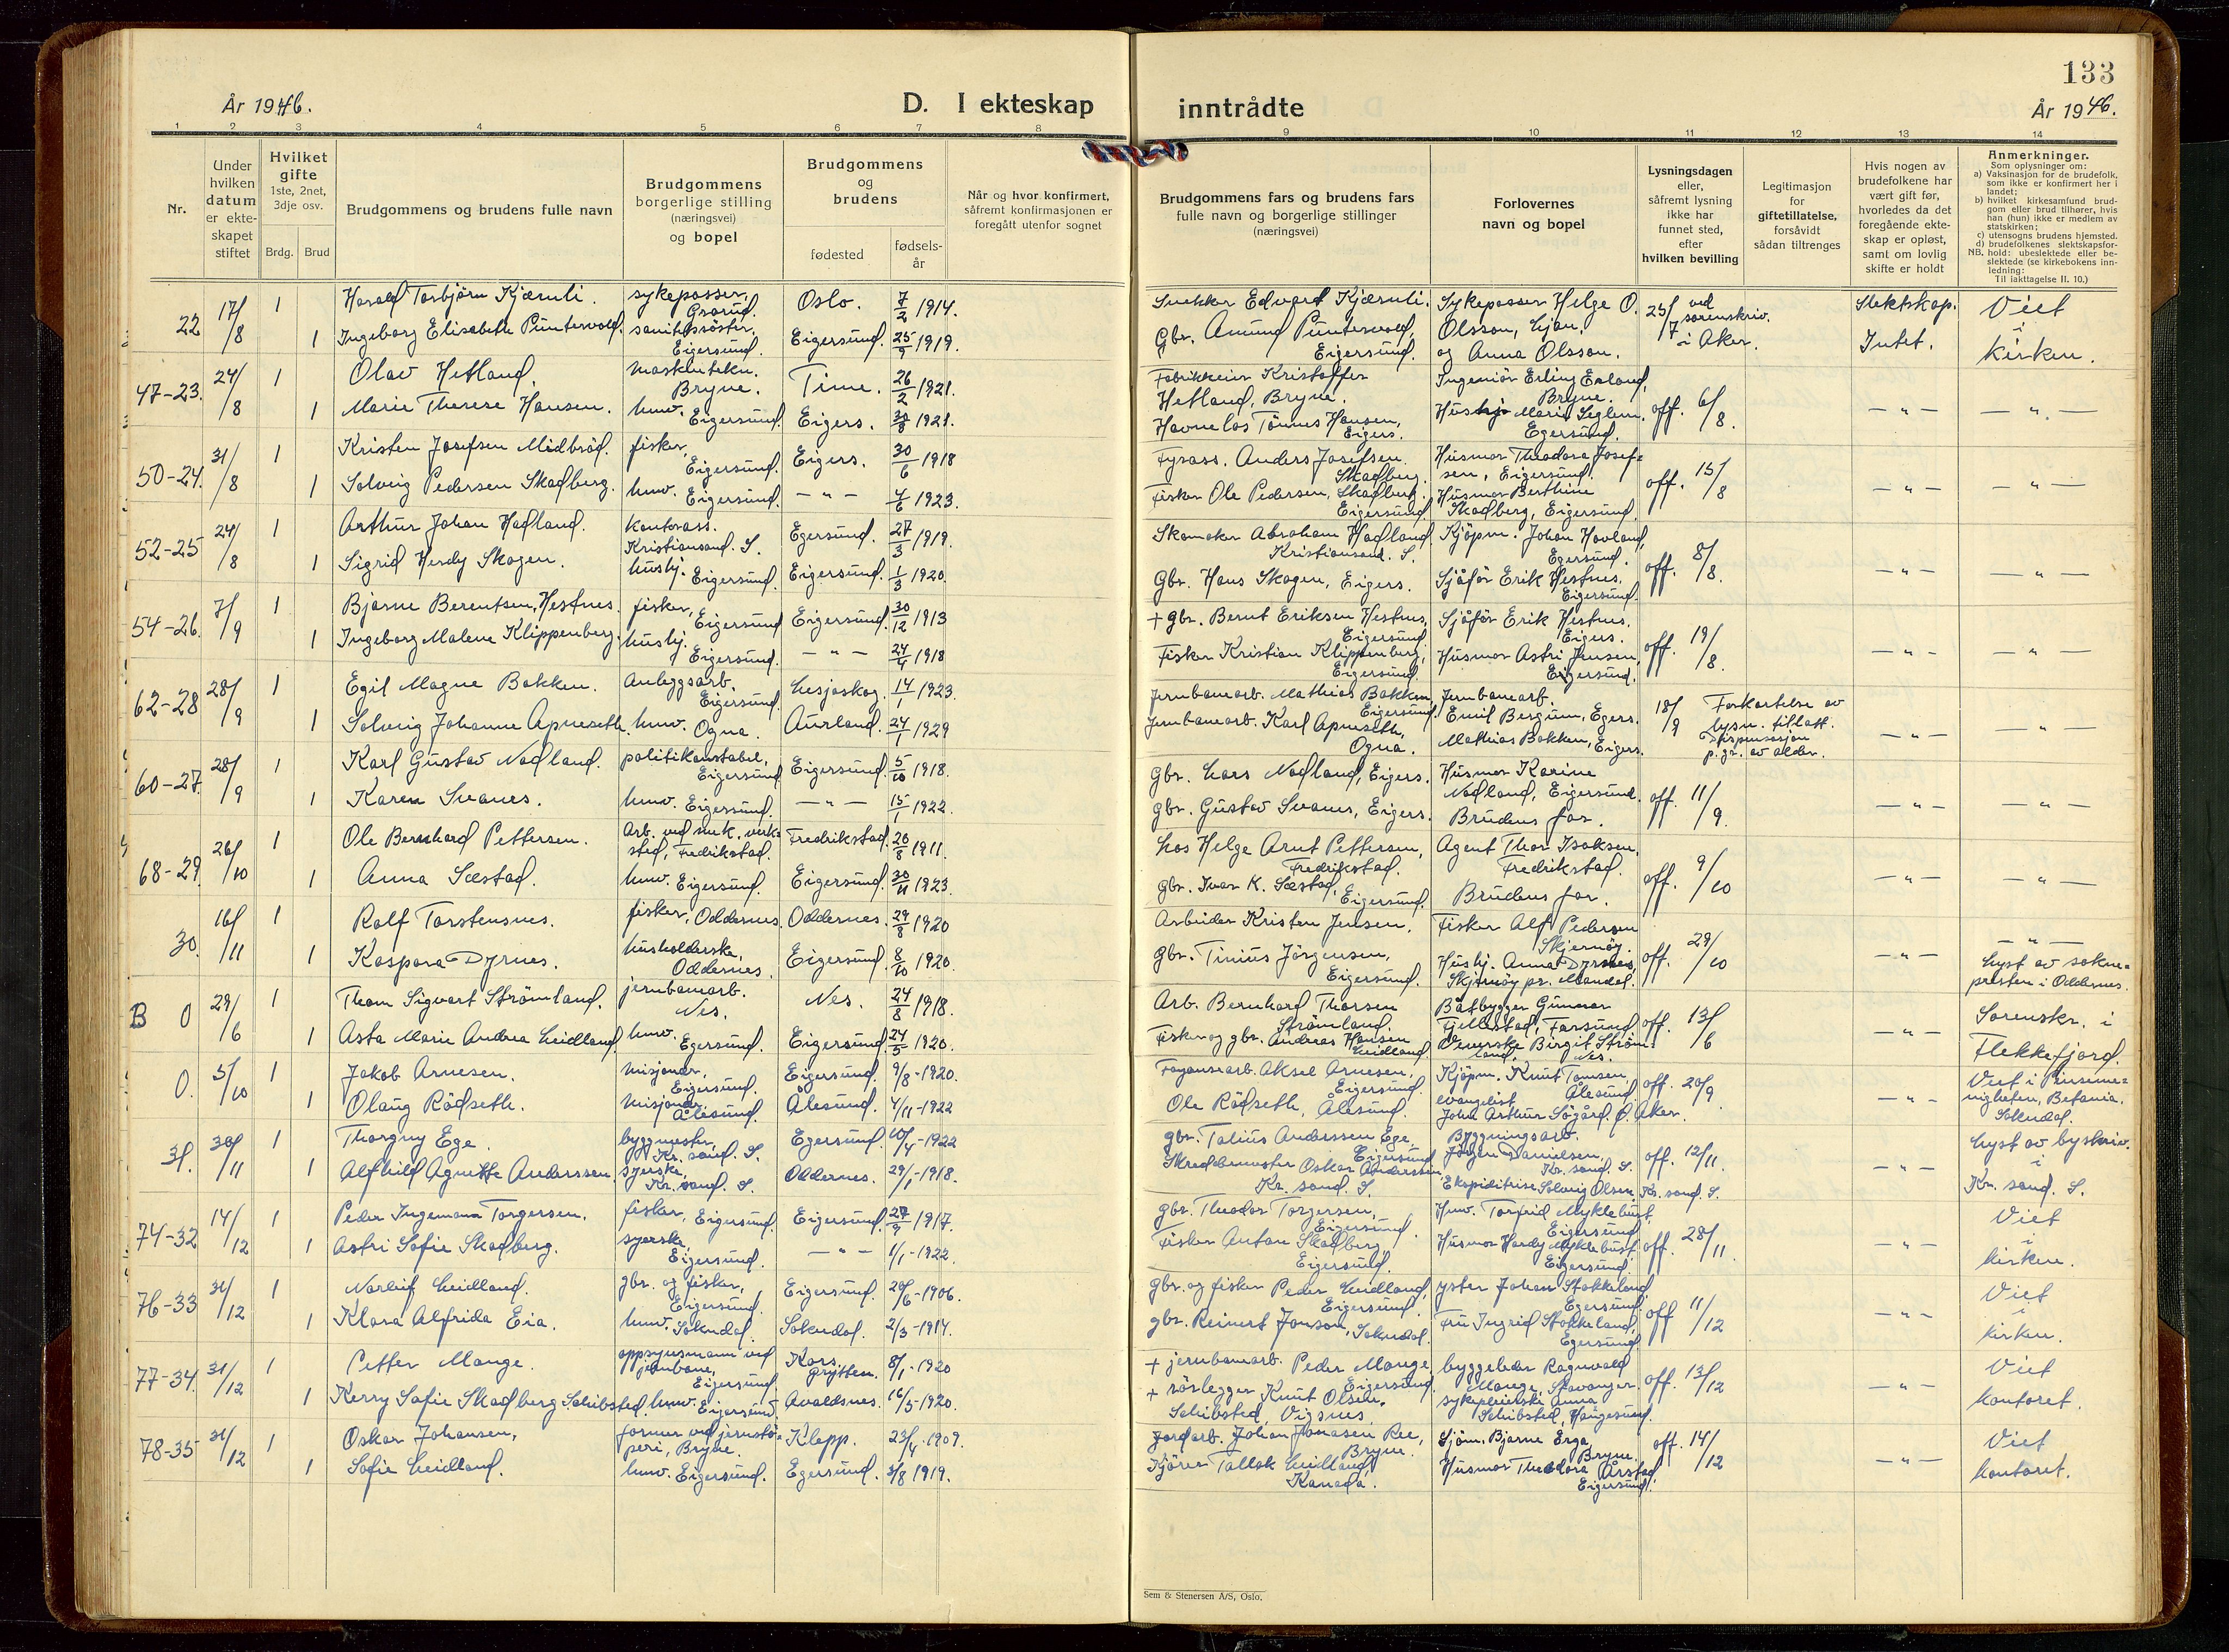 133
År 1946.
D. I ekteskap
inntrådte
År 1946.
1 2 3 4 5 6 7 8 9 10 11 12 13 14
Nr.
Under hvilken datum er ekteskapet stiftet
Hvilket gifte
1ste, 2net, 3dje osv.
Brdg. Brud
Brudgommens og brudens fulle navn
Brudgommens borgerlige stilling (næringsvei) og bopel
Brudgommens og brudens
fødested
fødsels-år
Når og hvor konfirmert, såfremt konfirmasjonen er foregått utenfor sognet
Brudgommens fars og brudens fars fulle navn og borgerlige stillinger (næringsvei)
Forlovernes navn og bopel
Lysningsdagen eller, såfremt lysning ikke har funnet sted, efter hvilken bevilling
Legitimasjon for giftetillatelse, forsåvidt sådan tiltrenges
Hvis nogen av brudefolkene har vært gift før, hvorledes da det foregående ekteskap er opløst, samt om lovlig skifte er holdt
Anmerkninger.
Som oplysninger om:
a) Vaksinasjon for de brudefolk, som ikke er konfirmert her i landet;
b) hvilket kirkesamfund brudgom eller brud tilhører, hvis han (hun) ikke er medlem av statskirken;
c) utensogns brudens hjemsted.
d) brudefolkenes slektskapsforhold: ubeslektede eller beslektede (se kirkebokens innledning:
NB.
Til iakttagelse II. 10.)
22 17/8 1 Harald Torbjørn Kjærnli. sykepasser, Grorud. Oslo. 7/2 1914. Edvard Kjærnli. Sykepasser Helge O. Olsson, 25/7 ved sorenskriv. i Aker. Slektskap. Viet
1 Ingeborg Elisabeth Puntervold. Eigersund. Eigersund. 25/9 1919. Gbr. Amund Puntervold, Eigersund. og Anna Olsson. Intet. i Kirken.
47-23. 24/8 1 Olav Hetland. maskintekn. Bryne. Time. 26/2 1921. Kristoffer Hetland, Bryne. Ingeniør Erling Erland, Bryne. off. 6/8. — " — — " —
1 Marie Therese Hansen. hmv. Eigersund. Eigers. 30/8 1921. Havnelos Tönnes Hansen, Eigers. Hushj. Marie Seglem. Egersund.
50-24. 31/8 1 Kristen Josefsen Midbröd. fisker, Eigersund. Eigers. 30/6 1918 Fyrass. Anders Josefsen. Skadberg. Husmor Theodora Josefsen, Eigersund. off. 15/8 — " — — " —
1 Solveig Pedersen Skadberg. hmv. Eigersund. — " — 4/6 1923. Fisker Ole Pedersen, Skadberg. Eigersund. Husmor Berthine Skadberg, Eigersund.
52-25 24/8 1 Arthur Johan Hadland. kontorass. Kristiansand. S. Egersund. 27/3 1919. Skomaker Abraham Hadland. Kristiansand. S. Kjöpm. Johan Hovland, Egersund. off. 8/8. — " — — " —
1 Sigrid Herdy Skogen. hushj. Eigersund. Eigersund. 1/3 1920. Gbr. Hans Skogen, Eigers. Sjåför Erik Hestnes. Eigersund.
54-26. 7/9 1 Bjarne Berentsen, Hestnes. fisker, Eigersund Eigersund. 30/12 1913 + gbr. Bernt Eriksen Hestnes, Eigersund Sjåför Erik Hestnes. Eigers. off. 19/8. — " — — " —
1 Ingeborg Malene Klippenberg. hushj. Eigersund. — " — 24/4 1918 Fisker Kristian Klippenberg, Eigersund. Husmor Astri Jensen, Eigersund.
62-28 28/9 1 Egil Magne Bakken. Anleggsarb. Eigersund. Lesjaskog. 14/1 1923. Jernbanearb. Mathias Bakken, Eigersund. Jernbanearb. Emil Bergum, Egers. 18/9 Forkortelse av lysn. tillatt. Dispensasjon p. gr. av alder. — " — — " —
1 Solveig Johanne Apneseth. hmv. Ogna. Aurland. 24/1 1929 Jernbanearb. Karl Apneseth, Ogna. Mathias Bakken, Eigers.
60-27. 28/9 1 Karl Gustav Nodland. politikonstabel, Eigersund Eigersund. 5/10 1918. Gbr. Lars Nodland, Eigers. Husmor Karine Nodland, Eigersund. off. 11/9. — " — — " —
1 Karen Svanes. hmv. Eigersund. — " — 15/1 1922. Gbr. Gustav Svanes, Eigers. Brudens far.
68-29. 26/10 1 Ole Bernhard Pettersen. Arb. ved mek. verksted, Fredrikstad. Fredrikstad. 20/8 1911. Los Helge Arnt Pettersen, Fredrikstad. Agent Thor Isaksen, Fredrikstad. off. 9/10 — " — — " —
1 Anna Sæstad. hmv. Eigersund. Eigersund. 30/11 1923. Gbr. Ivar K. Sæstad, Eigersund. Brudens far.
30. 16/11 1 Rolf Torstensnes. fisker, Oddernes. Oddernes. 29/8 1920 Arbeider Kristen Jensen. Fisker Alf Pedersen Skjernöy. off. 29/10 — " — — " —
1 Kaspara Dyrnes. husholderske, Oddernes. Eigersund. 8/10 1920. Gbr. Tinius Jörgensen, Eigersund. Hushj. Anna Dyrnes, Skjernöy pr. Mandal. Lyst av sokneprsten i Oddernes.
B 0 29/6 1 Thom Sigvart Strömland. jernbanearb. Nes. Nes. 24/8 1918. Arb. Bernhard Thorsen Strömland. Båtbygger Gunnar Fjellestad, Farsund. off. 13/6 — " — Sorenskr. i
1 Asta Marie Andrea Leidland. hmv. Egersund. Eigersund. 24/5 1920. Fisker og gbr. Andreas Hansen Leidland. Birgit Strömland, Nes. Flekkefjord.
0. 5/10 1 Jakob Arnesen. misjonær, Eigersund. Eigersund. 9/8-1920. Fayansearb. Aksel Arnesen, Eigersund. Kjöpm. Knut Tomsen, Ålesund. off. 20/9. — " — Viet i Pinsemenigheten, Betania. Sokndal.
1 Olaug Rödseth. misjonær, Ålesund. Ålesund. 4/11-1922 Ole Rödseth, Ålesund. evangelist John Arthur Sögård. Ö. Aker.
31. 30/11 1 Thorgny Ege. byggmester, Kr. sand. S. Egersund. 10/4-1922 gbr. Tolius Anderssen Ege, Eigersund Bygningsarb. Jörgen Danielsen, Kr. sand. S. off. 12/11. — " — Lyst av byskriv. i Kr. sand. S.
1 Alfhild Agnethe Anderssen. syerske, Kr. sand. S. Oddernes. 29/1-1918. Skreddermester Oskar Anderssen, Kr. sand. S. Ekspeditrise Solveig Olsen, Kr. sand. S.
74-32 14/12 1 Peder Ingemann Torgersen. fisker, Eigersund. Eigersund. 27/9 1917. gbr. Theodor Torgersen, Eigersund. Hmv. Torfrid Myklebust, Eigersund off. 28/11. — " — Viet
1 Astri Sofie Skadberg. syerske, Eigersund. — " — 1/1-1922. Fisker Anton Skadberg, Eigersund. Husmor Hardy Myklebust, Eigersund. i kirken.
76-33 31/12 1 Norleif Leidland. gbr. og fisker, Eigersund. Eigersund. 20/6-1906. Gbr. og fisker Peder Leidland, Eigersund. yster Johan Stokkeland, Egersund. off 11/12 — " — Viet
1 Klara Alfrida Eia. hmv. Sokndal. Sokndal. 2/3-1914. gbr. Reinert Jonson, Sokndal. Fru Ingrid Stokkeland, Egersund. i kirken.
77-34. 31/12 1 Petter Mange. oppsynsmann ved jernbane, Eigersund Kors, Grytten. 8/1-1920 + jernbanearb. Peder Mange, Eigersund. byggeleder Ragnvald Mange, Stavanger. off. 13/12 — " — Viet
1 Kerry Sofie Skadberg Schibsted. hmv. Eigersund Avaldsnes. 16/5-1920. + rörlegger Knut Olsen, Schibsted, Vigsnes. sykepleierske Anna Schibsted, Haugesund. kontoret.
78-35 31/12 1 Oskar Johansen, former ved jernstöperi, Bryne. Klepp. 23/4-1909. Jordarb. Johan Jonasen Ree, Bryne. Sjöm. Bjarne Erga, Bryne. off. 14/12 — " — Viet
1 Sofie Leidland. hmv. Eigersund. Egersund. 3/8 1919. Tallak Leidland, Kanada. Husmor Theodora Årstad. Eigersund. kontoret.
Sem & Stenersen A/S, Oslo.